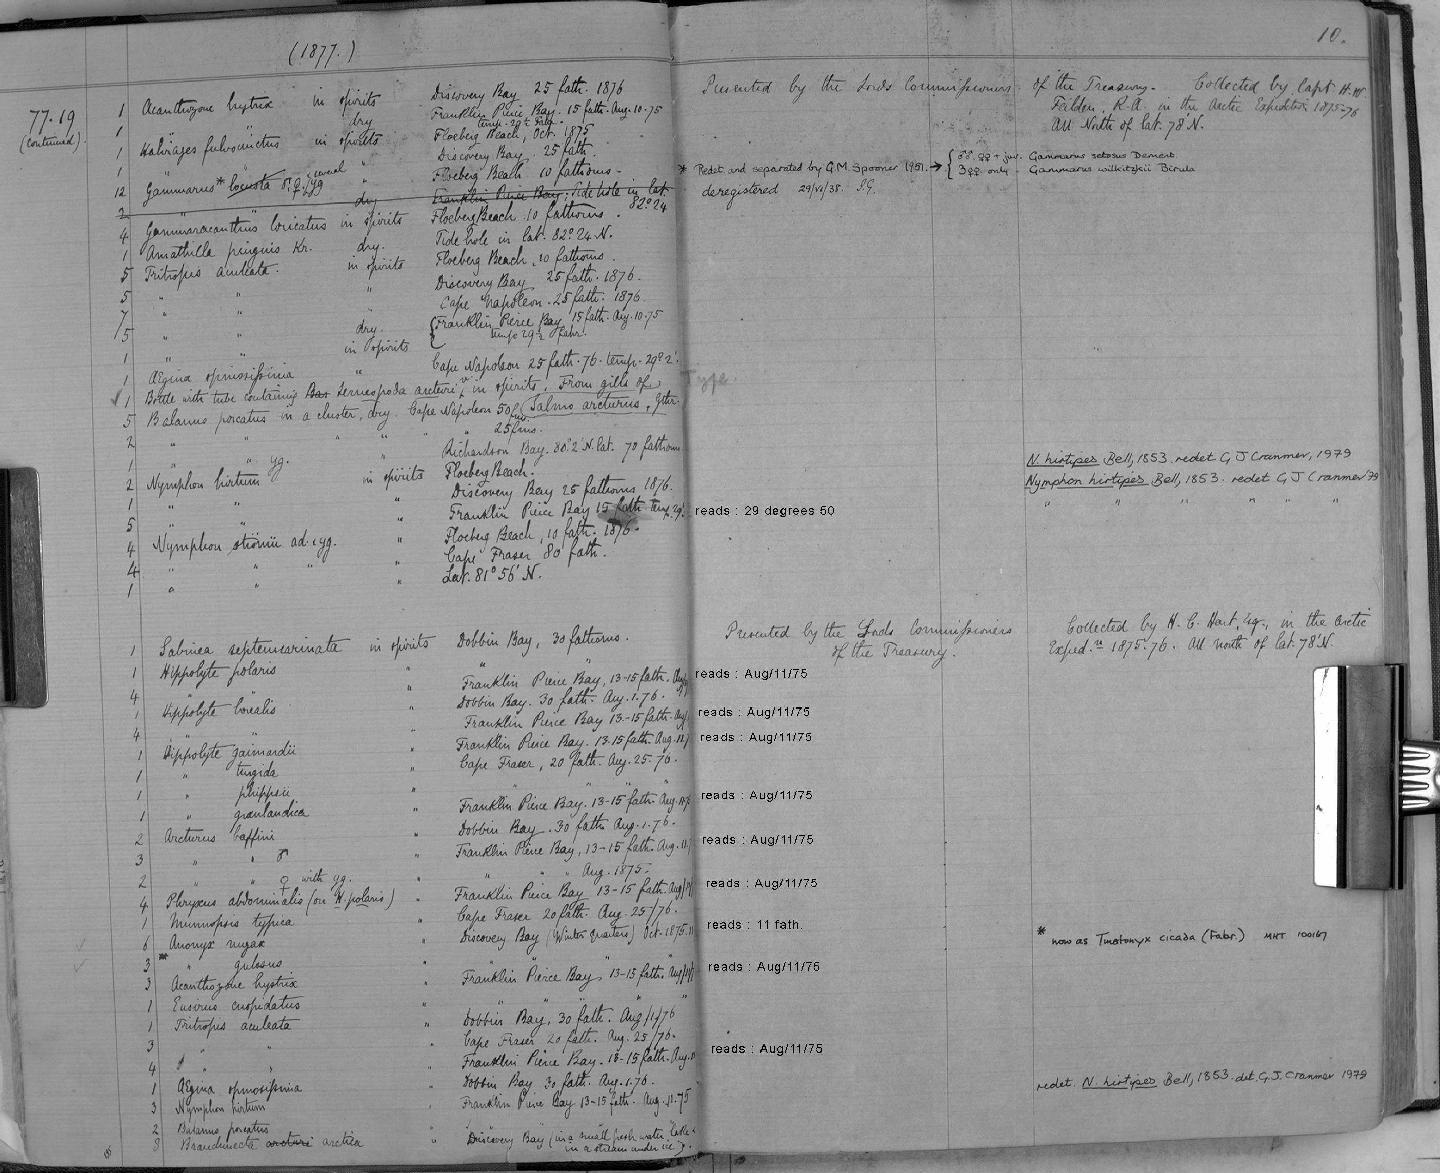 (1877.)
10.
77.19
(continued)
1 Acanthozone hystrix in spirits Discovery Bay 25 fath. 1876
Presented by the Lords Commissioners of the Treasury. Collected by Capt. H. W
1 " " dry Franklin Pierce Bay. 15 fath. Aug. 10. 75
Feilden, R.A. in the Arctic Expedition 1875-76
All North of lat. 78°N.
1 Halirages fulvocinctus in spirits Floeberg Beach, Oct. 1875
1 " " " Discovery Bay. 25 fath.
12 Gammarus* locusta ♂. ♀. & yg several " Floeberg Beach 10 fathoms.
* Redet and separated by G.M. Spooner 1951. → { ♂♂. ♀♀ + juv. Gammarus setosus Dement
3 ♀♀ only - Gammarus wilkitzkii Birula
2 " " dry Franklin Pierce Bay: Tide hole in lat. 82°24
deregistered 29/VI/38. I.G.
4 Gammaracanthus loricatus in spirits Floeberg Beach. 10 fathoms.
1 Amathilla pinguis Kr. dry. Tide hole in lat. 82° 24 N.
5 Tritropis aculeata. in spirits Floeberg Beach, 10 fathoms.
5 " " " Discovery Bay 25 fath. 1876.
7 " " Cape Napoleon. 25 fath. 1876.
5 " " dry. { Franklin Pierce Bay 15 fath. Aug. 10. 75
1 " " in spirits
1 Ægina spinosissima " Cape Napoleon 25 fath. 76. temp. 29°.2'.
1 Bottle with tube containing Lerneopoda arcturi, in spirits. From gills of
Type.
5 Balanus porcatus in a cluster, dry. Cape Napoleon 50 fms. (Salmo arcturus, Gthr.
2 " " " " " " 25 fms.
1 " " yg. " Richardson Bay. 80°.2' N. lat. 70 fathoms
2 Nymphon hirtum in spirits Floeberg Beach.
N. hirtipes Bell, 1853. redet G J Cranmer, 1979
1 " " " Discovery Bay 25 fathoms 1876.
Nymphon hirtipes Bell, 1853. redet G J Cranmer '79
5 " " " Franklin Pierce Bay 15 fath temp. 29°.
reads : 29 degrees 50
" " " " " "
4 Nymphon strömii ad. & yg. " Floeberg Beach, 10 fath. 1876.
4 " " " " Cape Fraser 80 fath.
1 " " Lat. 81° 56' N.
1 Sabinea septemcarinata in spirits Dobbin Bay, 30 fathoms.
Presented by the Lords Commissioners of the Treasury.
Collected by H. C. Hart, Esq., in the Arctic
Exped.n 1875-76. All north of lat. 78°N.
1 Hippolyte polaris " "
4 " " " Franklin Pierce Bay, 13-15 fath. Aug
reads : Aug/11/75
1 Hippolyte borealis " Dobbin Bay. 30 fath. Aug. 1. 76.
4 " " " Franklin Pierce Bay 13-15 fath. Aug
reads : Aug/11/75
1 Hippolyte gaimardii " Franklin Pierce Bay. 13-15 fath. Aug. 11.
reads : Aug/11/75
1 " turgida " Cape Fraser, 20 fath. Aug. 25. 76.
1 " phippsii " " " "
1 " grœnlandica " Franklin Pierce Bay. 13-15 fath. Aug. 11. 7
reads : Aug/11/75
2 Arcturus baffini " Dobbin Bay. 30 fath. Aug. 1. 76.
3 " " ♂ " Franklin Pierce Bay, 13-15 fath. Aug. 11.
reads : Aug/11/75
2 " " ♀ with yg. " " " " Aug. 1875.
4 Phryxus abdominalis (on H. polaris) " Franklin Pierce Bay 13-15 fath. Aug/11/
reads : Aug/11/75
1 Munnopsis typica " Cape Fraser 20 fath. Aug. 25/76.
6 Anonyx nugax " Discovery Bay (Winter quarters) Oct. 1875. 11
reads : 11 fath.
* now as Tmetonyx cicada (Fabr.) MHT 100167
3 * " gulosus " " " "
3 Acanthozone hystrix " Franklin Pierce Bay 13-15 fath. Aug/11/
reads : Aug/11/75
1 Eusirus cuspidatus " " " " "
1 Tritropis aculeata " Dobbin Bay, 30 fath. Aug/1/76
3 " " " Cape Fraser 20 fath. Aug. 25/76.
4 " " " Franklin Pierce Bay. 13-15 fath. Aug. 11
reads : Aug/11/75
1 Ægina spinosissima " Dobbin Bay 30 fath. Aug. 1. 76.
3 Nymphon hirtum " Franklin Pierce Bay 13-15 fath. Aug. 11. 75
redet. N. hirtipes Bell, 1853. det. G.J. Cranmer 1979
2 Balanus porcatus
8 Branchinecta arcturi arctica " Discovery Bay (in a small fresh water lake &
in a stream under ice).